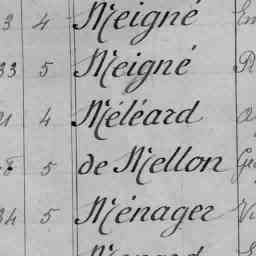 3 4 Meigné
33 5 Meigné
4 Méléard
5 de Mellon
34 5 Ménager